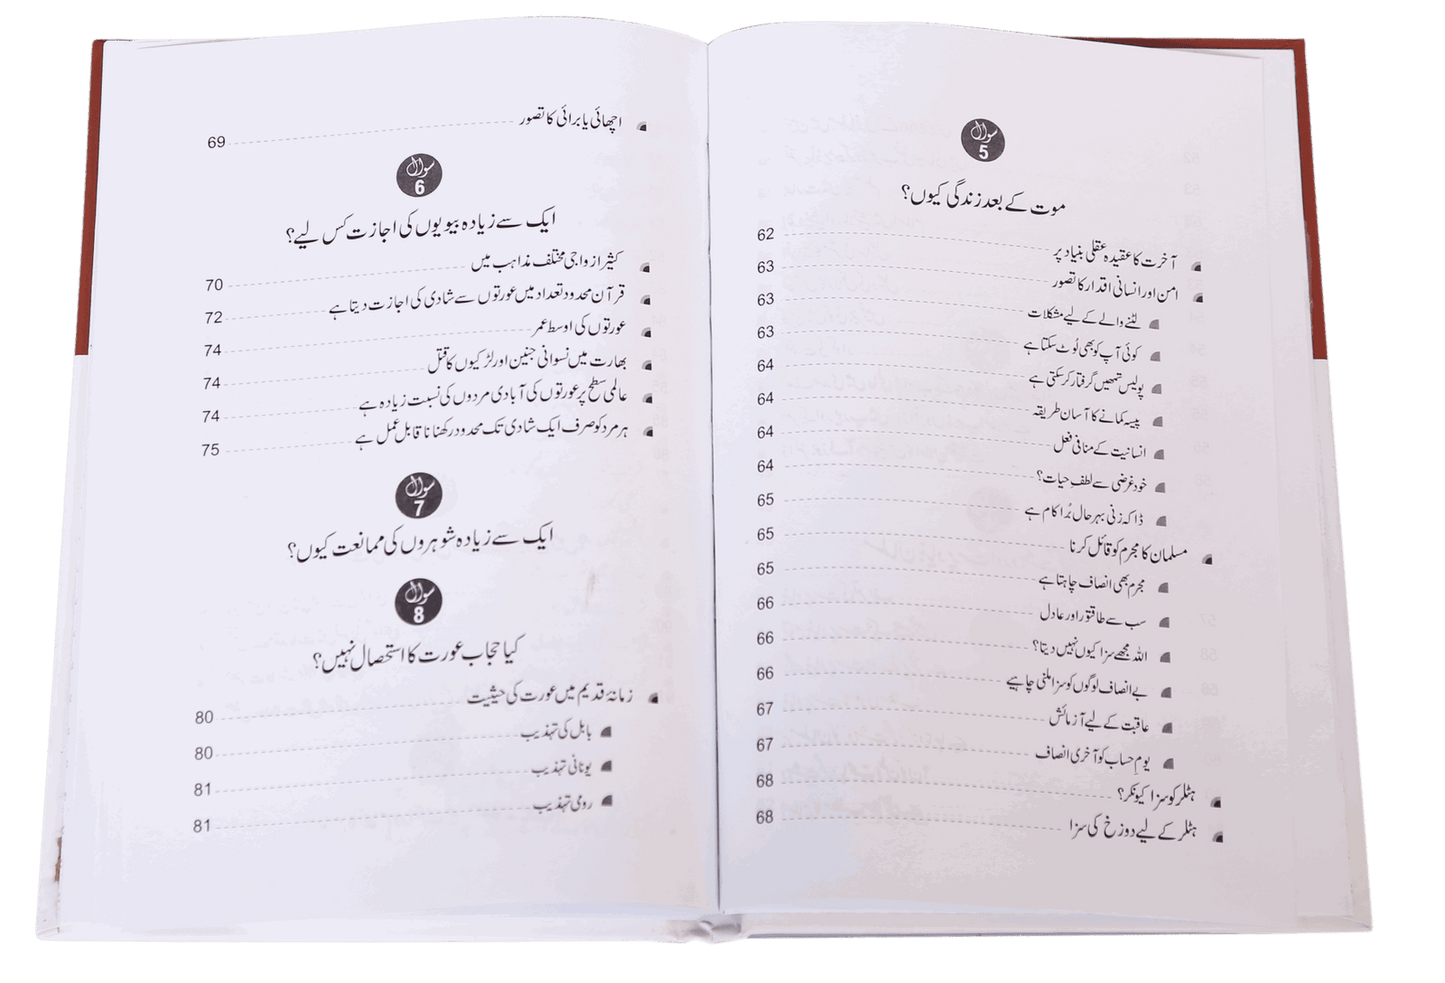 سوال
5
موت کے بعد زندگی کیوں؟
آخرت کا عقیدہ عقلی بنیاد پر 62
امن اور انسانی اقدار کا تصور 63
لٹنے والے کے لیے مشکلات 63
کوئی آپ کو بھی لُوٹ سکتا ہے 63
پولیس تمھیں گرفتار کر سکتی ہے 64
پیسہ کمانے کا آسان طریقہ 64
انسانیت کے منافی فعل 64
خود غرضی سے لطفِ حیات؟ 64
ڈاکہ زنی بہر حال بُرا کام ہے 65
مسلمان کا مجرم کو قائل کرنا 65
مجرم بھی انصاف چاہتا ہے 65
سب سے طاقتور اور عادل 66
اللہ مجھے سزا کیوں نہیں دیتا؟ 66
بے انصاف لوگوں کو سزا ملنی چاہیے 66
عاقبت کے لیے آزمائش 67
یوم حساب کو آخری انصاف 67
ہٹلر کو سزا کیونکر؟ 68
ہٹلر کے لیے دوزخ کی سزا 68
اچھائی یا برائی کا تصور 69
سوال
6
ایک سے زیادہ بیویوں کی اجازت کس لیے؟
کثیر ازواجی مختلف مذاہب میں 70
قرآن محدود تعداد میں عورتوں سے شادی کی اجازت دیتا ہے 72
عورتوں کی اوسط عمر 74
بھارت میں نسوانی جنین اور لڑکیوں کا قتل 74
عالمی سطح پر عورتوں کی آبادی مردوں کی نسبت زیادہ ہے 74
ہر مرد کو صرف ایک شادی تک محدود رکھنا ناقابل عمل ہے 75
سوال
7
ایک سے زیادہ شوہروں کی ممانعت کیوں؟
سوال
8
کیا حجاب عورت کا استحصال نہیں؟
زمانۂ قدیم میں عورت کی حیثیت 80
بابل کی تہذیب 80
یونانی تہذیب 81
رومی تہذیب 81